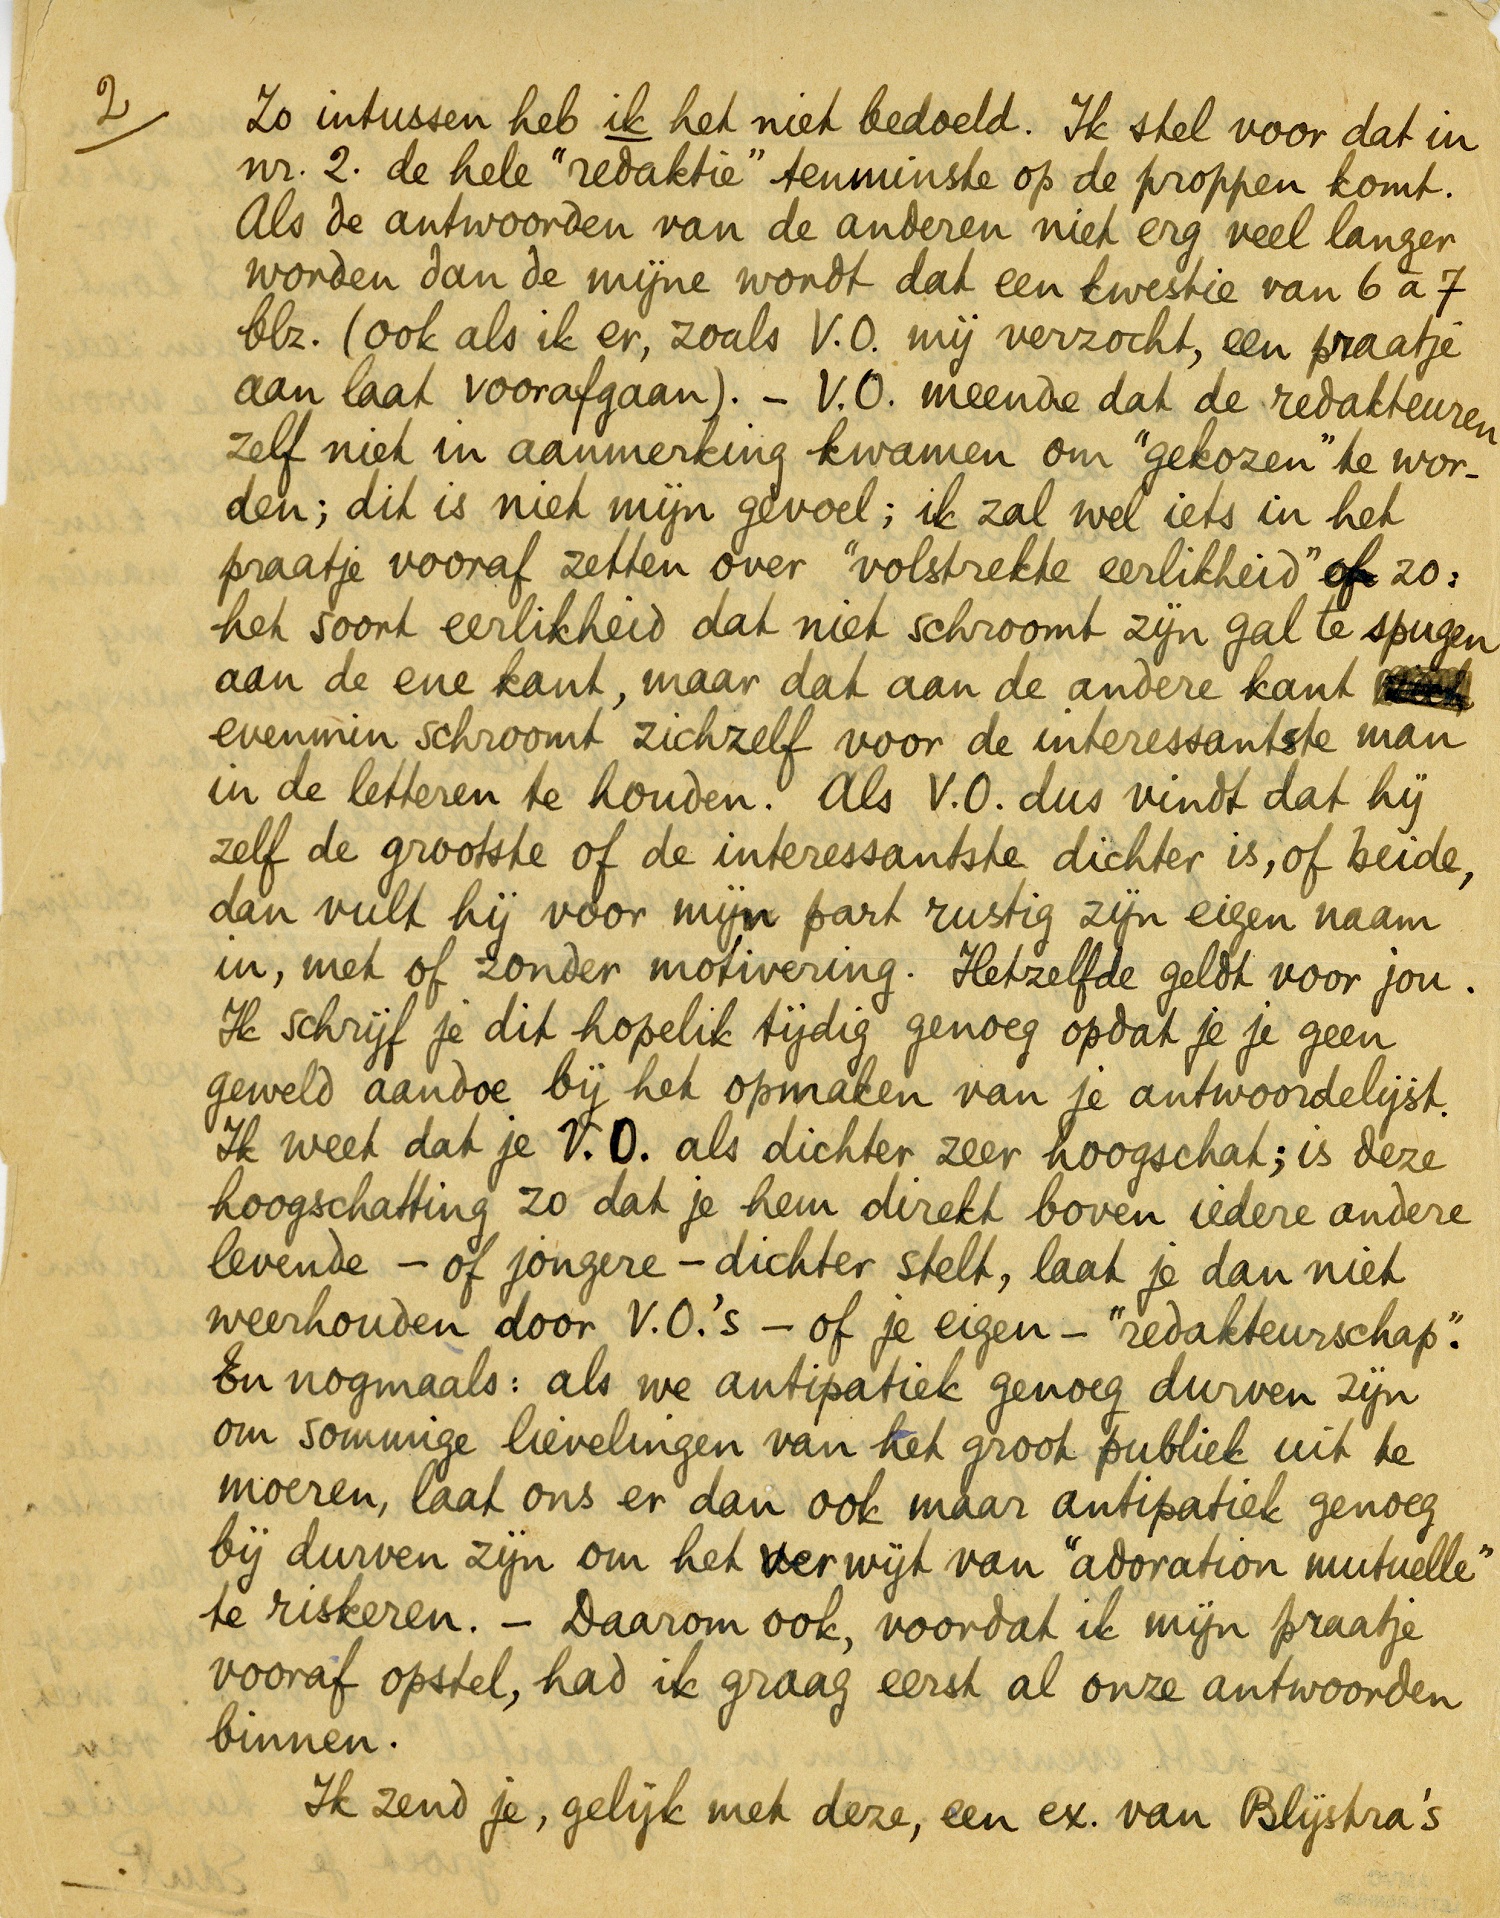 2/
Zo intussen heb ik het niet bedoeld. Ik stel voor dat in
nr. 2. de hele "redaktie" tenminste op de proppen komt.
Als de antwoorden van de anderen niet erg veel langer
worden dan de mijne wordt dat een kwestie van 6 à 7
blz. (ook als ik er, zoals V.O. mij verzocht, een praatje
aan laat voorafgaan). – V.O. meende dat de redakteuren
zelf niet in aanmerking kwamen om "gekozen" te wor-
den; dit is niet mijn gevoel; ik zal wel iets in het
praatje vooraf zetten over "volstrekte eerlikheid" of zo:
het soort eerlikheid dat niet schroomt zijn gal te spugen
aan de ene kant, maar dat aan de andere kant
evenmin schroomt zichzelf voor de interessantste man
in de letteren te houden. Als V.O. dus vindt dat hij
zelf de grootste of de interessantste dichter is, of beide,
dan vult hij voor mijn part rustig zijn eigen naam
in, met of zonder motivering. Hetzelfde geldt voor jou.
Ik schrijf je dit hopelik tijdig genoeg opdat je je geen
geweld aandoe bij het opmaken van je antwoordelijst.
Ik weet dat je V.O. als dichter zeer hoogschat; is deze
hoogschatting zo dat je hem direkt boven iedere andere
levende – of jongere – dichter stelt, laat je dan niet
weerhouden door V.O.'s – of je eigen – "redakteurschap".
En nogmaals: als we antipatiek genoeg durven zijn
om sommige lievelingen van het groot publiek uit te
moeren, laat ons er dan ook maar antipatiek genoeg
bij durven zijn om het verwijt van "adoration mutuelle"
te riskeren. – Daarom ook, voordat ik mijn praatje
vooraf opstel, had ik graag eerst al onze antwoorden
binnen.
Ik zend je, gelijk met deze, een ex. van Blijstra's